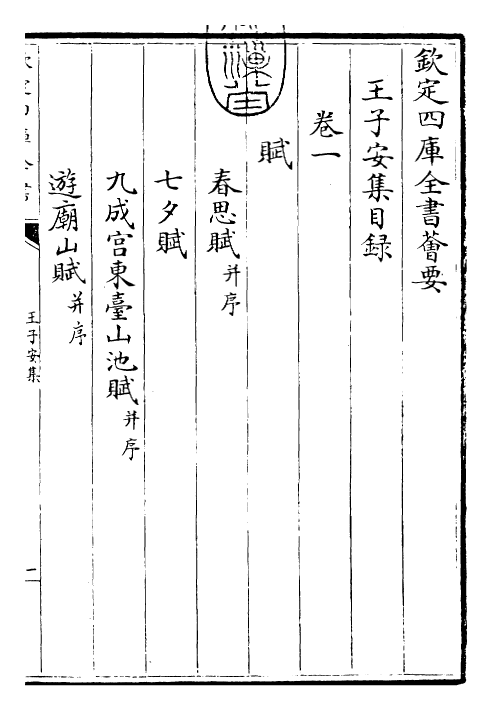 欽定四庫全書薈要
王子安集目録
卷一
賦
春思賦并序
七夕賦
九成宫東臺山池賦并序
遊廟山賦并序
王子安集
一